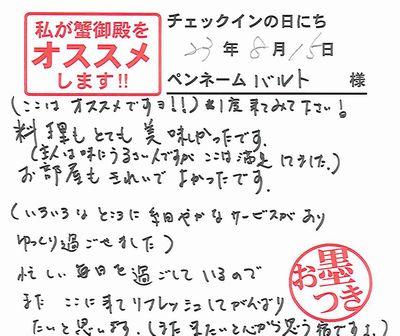 私が蟹御殿を
オススメ
します!!
チェックインの日にち
23年8月15日
ペンネーム バルト 様
(ここは オススメですヨ!!) 1度来てみて下さい!
料理もとても美味しかったです.
(主人は味にうるさい人ですが ここは満足してました.)
お部屋もきれいで よかったです.
(いろいろな ところに 細やかなサービスがあり
ゆっくり過ごせました)
忙しい毎日を過ごしているので
また ここに来てリフレッシュしてがんばり
たいと思います. (また来たいと心から思う宿ですよ.)
お墨つき